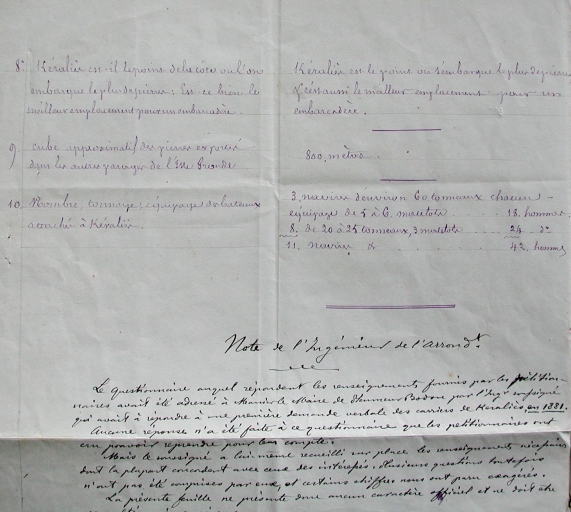 8° Kéralièr est-il le point de la côte ou l'on
embarque le plus de pierres; Est-ce bien le
meilleur emplacement pour un embarcadère.
Kéralièr est le point ou s'embarque le plus de pierres
C'est aussi le meilleur emplacement pour un
embarcadère.
9) cube approximatif des pierres exporté
dans les autres parages de l'Isle Grande
800, mètres
10, Nombre, tonnage, équipage des bateaux
attachés à Kéralièr.
3, navires d'environ 60 tonneaux chacun -
équipage de 5 à 6, matelots 18. hommes
8, de 20 à 25 tonneaux, 3 matelots 24 d°
11, navires 42, hommes
Note de l'Ingénieur de l'Arrondt.
Le questionnaire auquel répondent les renseignements fournis par les pétition-
naires avait été adressé à Monsieur le Maire de Pleumeur Bodou par l'Ingr soussigné
qui avait à répondre à une première demande verbale des carriers de Keraliès, en 1881.
Aucune réponse n'a été faite à ce questionnaire que les petitionnaires ont
cru pouvoir reprendre pour leur compte.
Mais le soussigné a lui même recueilli sur place les renseignements nécessaires
dont la plupart concordent avec ceux des intéressés. Plusieurs questions toutefois
n'ont pas été comprises par eux, et certains chiffres nous ont paru exagérés.
La présente feuille ne présente donc aucun caractère officiel et ne doit être